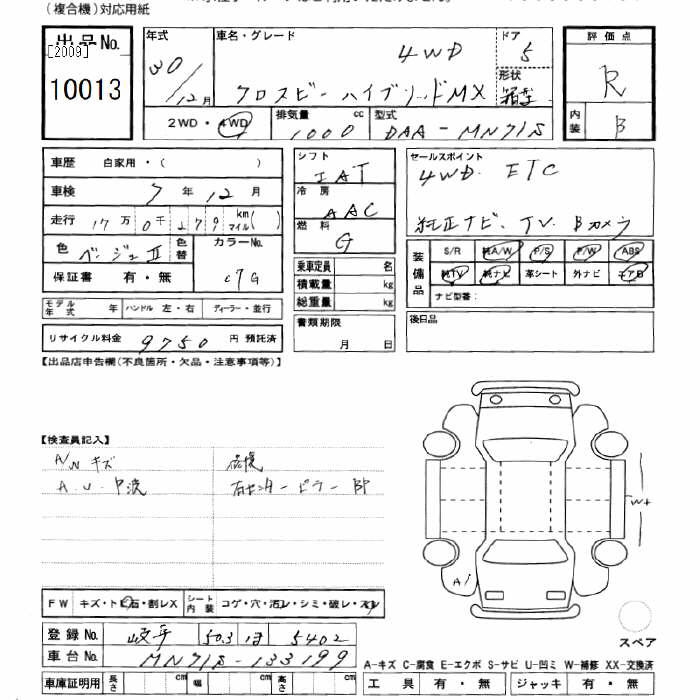 (複合機)対応用紙
出品No.
[2009]
10013
年式
30/12月
車名・グレード
4WD
クロスビー ハイブリッドMX
ドア
5
形状
箱型
評価点
R
内装
B
2WD・4WD
排気量
1000
cc
型式
DAA-MN71S
車歴 自家用・( )
車検 7年12月
走行 17万0千279km マイル( )
色 ベージュII 色替
カラーNo.
C7G
保証書 有・無
モデル年式 年 ハンドル 左・右 ディーラー・並行
リサイクル料金 9750円 預託済
シフト
IAT
冷房
AAC
燃料
G
乗車定員 名
積載量 kg
総重量 kg
書類期限
月 日
セールスポイント
4WD ETC
純正ナビ、TV、Bカメラ
装備品
S/R 純A/W P/S P/W ABS
純TV 純ナビ 革シート 外ナビ エアB
ナビ型番:
後日品
【出品店申告欄(不良箇所・欠品・注意事項等)】
【検査員記入】
A/W キズ
右センターピラー
W+
A1
FW キズ・トビ石・割レX
シート内装 コゲ・穴・汚レ・シミ・破レ・スレ
登録No. 岐阜 503 ほ 5402
車台No. MN71S-133199
車庫証明用 長さ cm 幅 cm 高さ cm
スペア
A-キズ C-腐食 E-エクボ S-サビ U-凹ミ W-補修 XX-交換済
工具 有・無 ジャッキ 有・無